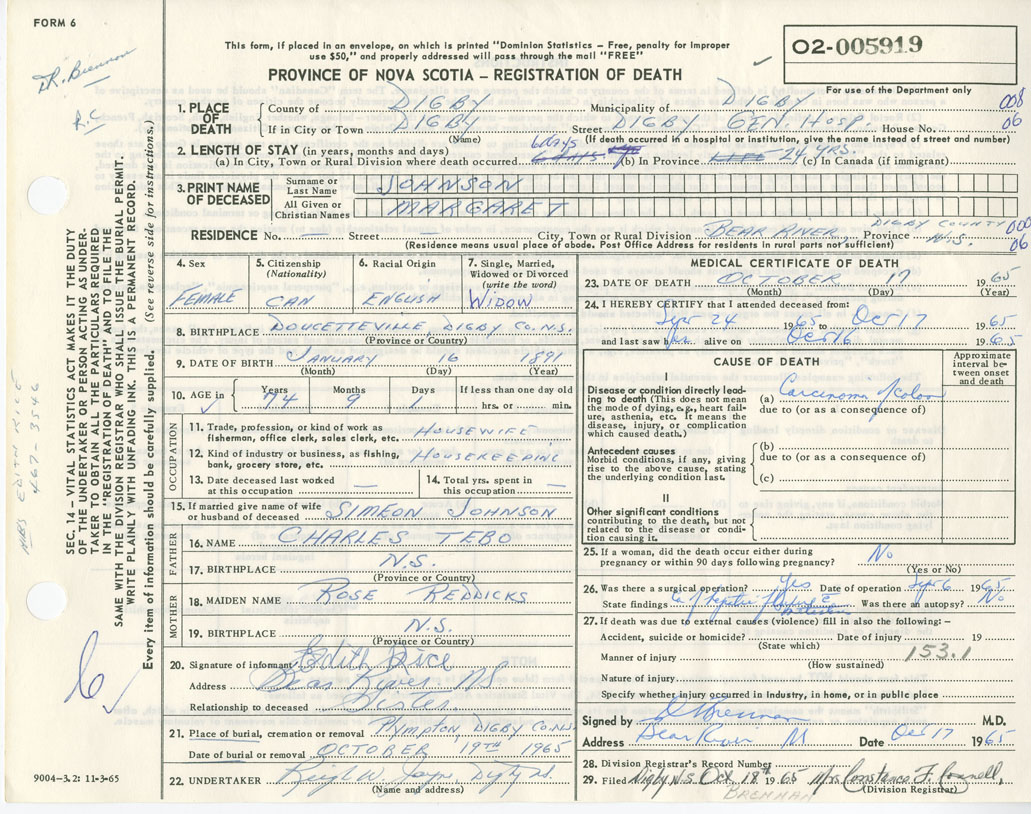 FORM 6
This form, if placed in an envelope, on which is printed "Dominion Statistics – Free, penalty for improper
use $50," and properly addressed will pass through the mail "FREE"
O2-005919
PROVINCE OF NOVA SCOTIA – REGISTRATION OF DEATH
For use of the Department only
DR. Brennan
R.C
1. PLACE OF DEATH
County of DIGBY Municipality of DIGBY 008
If in City or Town DIGBY Street DIGBY GEN HOSP House No. 06
(Name) (If death occurred in a hospital or institution, give the name instead of street and number)
2. LENGTH OF STAY (in years, months and days)
(a) In City, Town or Rural Division where death occurred 6 days (b) In Province LIFE 74 YRS. (c) In Canada (if immigrant)
3. PRINT NAME OF DECEASED
Surname or Last Name JOHNSON
All Given or Christian Names MARGARET
RESIDENCE No. — Street — City, Town or Rural Division BEAR RIVER, Province DIGBY COUNTY N.S. 06
(Residence means usual place of abode. Post Office Address for residents in rural parts not sufficient)
4. Sex FEMALE
5. Citizenship (Nationality) CAN
6. Racial Origin ENGLISH
7. Single, Married, Widowed or Divorced (write the word) WIDOW
8. BIRTHPLACE DOUCETTEVILLE, DIGBY CO. N.S.
(Province or Country)
9. DATE OF BIRTH JANUARY 16 1891
(Month) (Day) (Year)
10. AGE in Years 74 Months 9 Days 1 If less than one day old hrs. or min.
OCCUPATION
11. Trade, profession, or kind of work as fisherman, office clerk, sales clerk, etc. HOUSEWIFE
12. Kind of industry or business, as fishing, bank, grocery store, etc. HOUSEKEEPING
13. Date deceased last worked at this occupation —
14. Total yrs. spent in this occupation —
15. If married give name of wife or husband of deceased SIMEON JOHNSON
FATHER
16. NAME CHARLES TEBO
17. BIRTHPLACE N.S.
(Province or Country)
MOTHER
18. MAIDEN NAME ROSE REDDICKS
19. BIRTHPLACE N.S.
(Province or Country)
20. Signature of informant Edith Rice
Address Bear River NS
Relationship to deceased Sister
21. Place of burial, cremation or removal Plympton, DIGBY CO. N.S.
Date of burial or removal OCTOBER 19TH 1965
22. UNDERTAKER
(Name and address)
MEDICAL CERTIFICATE OF DEATH
23. DATE OF DEATH OCTOBER 17 1965
(Month) (Day) (Year)
24. I HEREBY CERTIFY that I attended deceased from:
Sept 24 1965 to Oct 17 1965
and last saw her alive on Oct 16 1965
CAUSE OF DEATH
Approximate interval between onset and death
I
Disease or condition directly leading to death (This does not mean the mode of dying, e.g., heart failure, asthenia, etc. It means the disease, injury, or complication which caused death.)
(a) Carcinoma of colon
due to (or as a consequence of)
Antecedent causes
Morbid conditions, if any, giving rise to the above cause, stating the underlying condition last.
(b)
due to (or as a consequence of)
(c)
II
Other significant conditions
contributing to the death, but not related to the disease or condition causing it.
25. If a woman, did the death occur either during pregnancy or within 90 days following pregnancy? No
(Yes or No)
26. Was there a surgical operation? Yes Date of operation Sept 6 1965
State findings Was there an autopsy? No
27. If death was due to external causes (violence) fill in also the following: –
Accident, suicide or homicide? Date of injury 19
(State which)
Manner of injury 153.1
(How sustained)
Nature of injury
Specify whether injury occurred in industry, in home, or in public place
Signed by D Brennan M.D.
Address Bear River Date Oct 17 1965
28. Division Registrar's Record Number
29. Filed Digby N.S. Oct. 18th 1965 Mrs. Constance F. Connell,
(Division Registrar)
BRENNAN
SEC. 14 – VITAL STATISTICS ACT MAKES IT THE DUTY
OF THE UNDERTAKER OR PERSON ACTING AS UNDER-
TAKER TO OBTAIN ALL THE PARTICULARS REQUIRED
IN THE "REGISTRATION OF DEATH" AND TO FILE THE
SAME WITH THE DIVISION REGISTRAR WHO SHALL ISSUE THE BURIAL PERMIT.
WRITE PLAINLY WITH UNFADING INK. THIS IS A PERMANENT RECORD.
Every item of information should be carefully supplied. (See reverse side for instructions.)
MRS EDITH RICE
467-3546
6
9004-3.2: 11-3-65